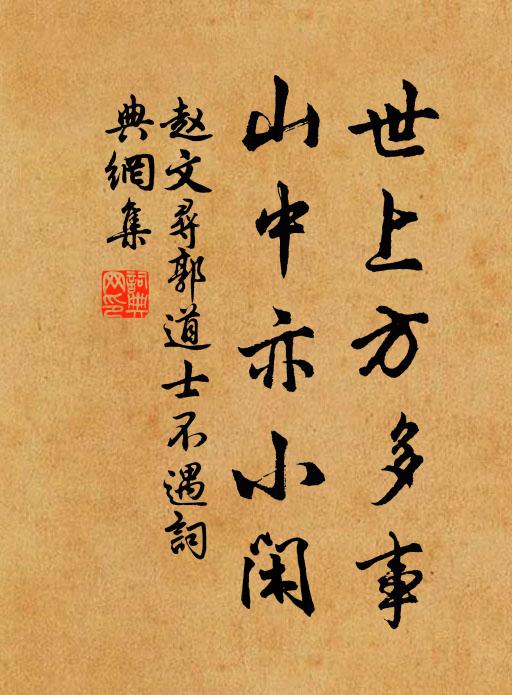 世上方多事
山中亦小闲
赵文尋郭道士不遇詞
典網集
詞典网印